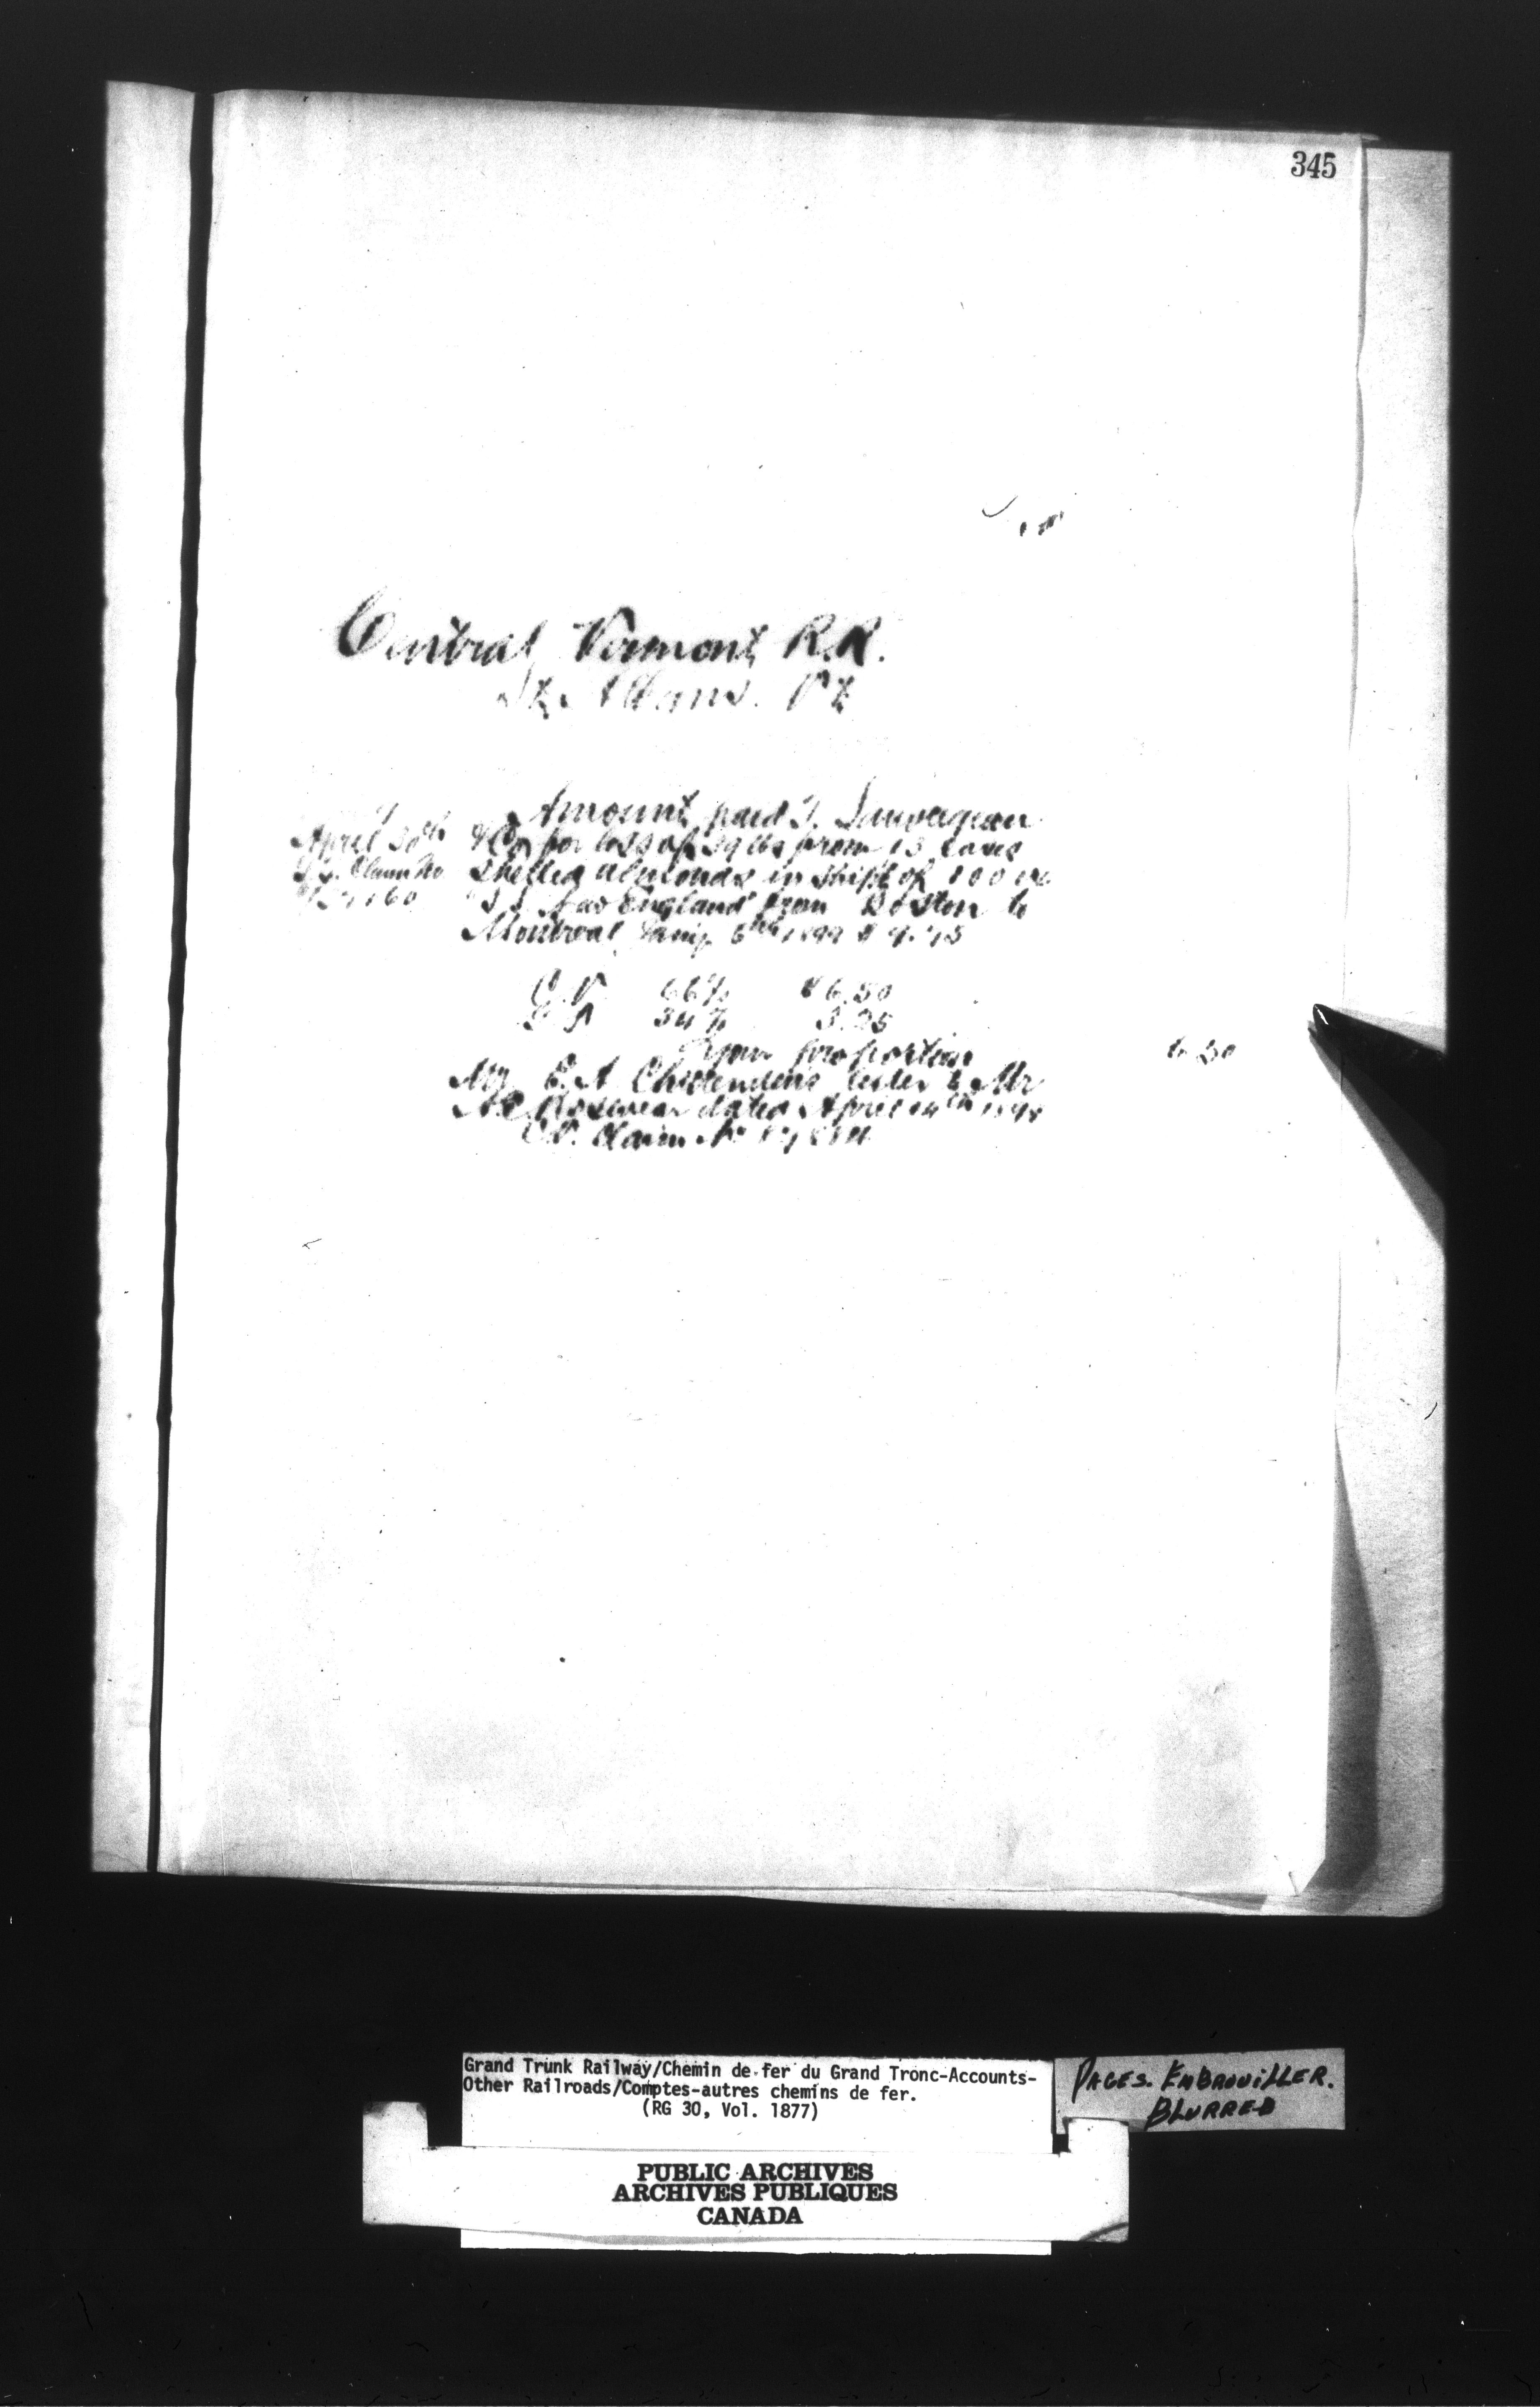 345
Central Vermont R.R.
St. Albans. Vt
Amount paid
April 30th & Co for loss of 39 lbs from 13 cases
Claim No shelled almonds in shipt of 100
New England from Boston to
Montreal 5th 1899 $ 9.75
C.V. 66% $6.50
34% 3.25
Your proportion 6.50
C. A. Chittenden's letter to Mr
dated April 14th
C.V. Claim No
Grand Trunk Railway/Chemin de fer du Grand Tronc-Accounts-
Other Railroads/Comptes-autres chemins de fer.
(RG 30, Vol. 1877)
PAGES. EMBROUILLER.
BLURRED
PUBLIC ARCHIVES
ARCHIVES PUBLIQUES
CANADA